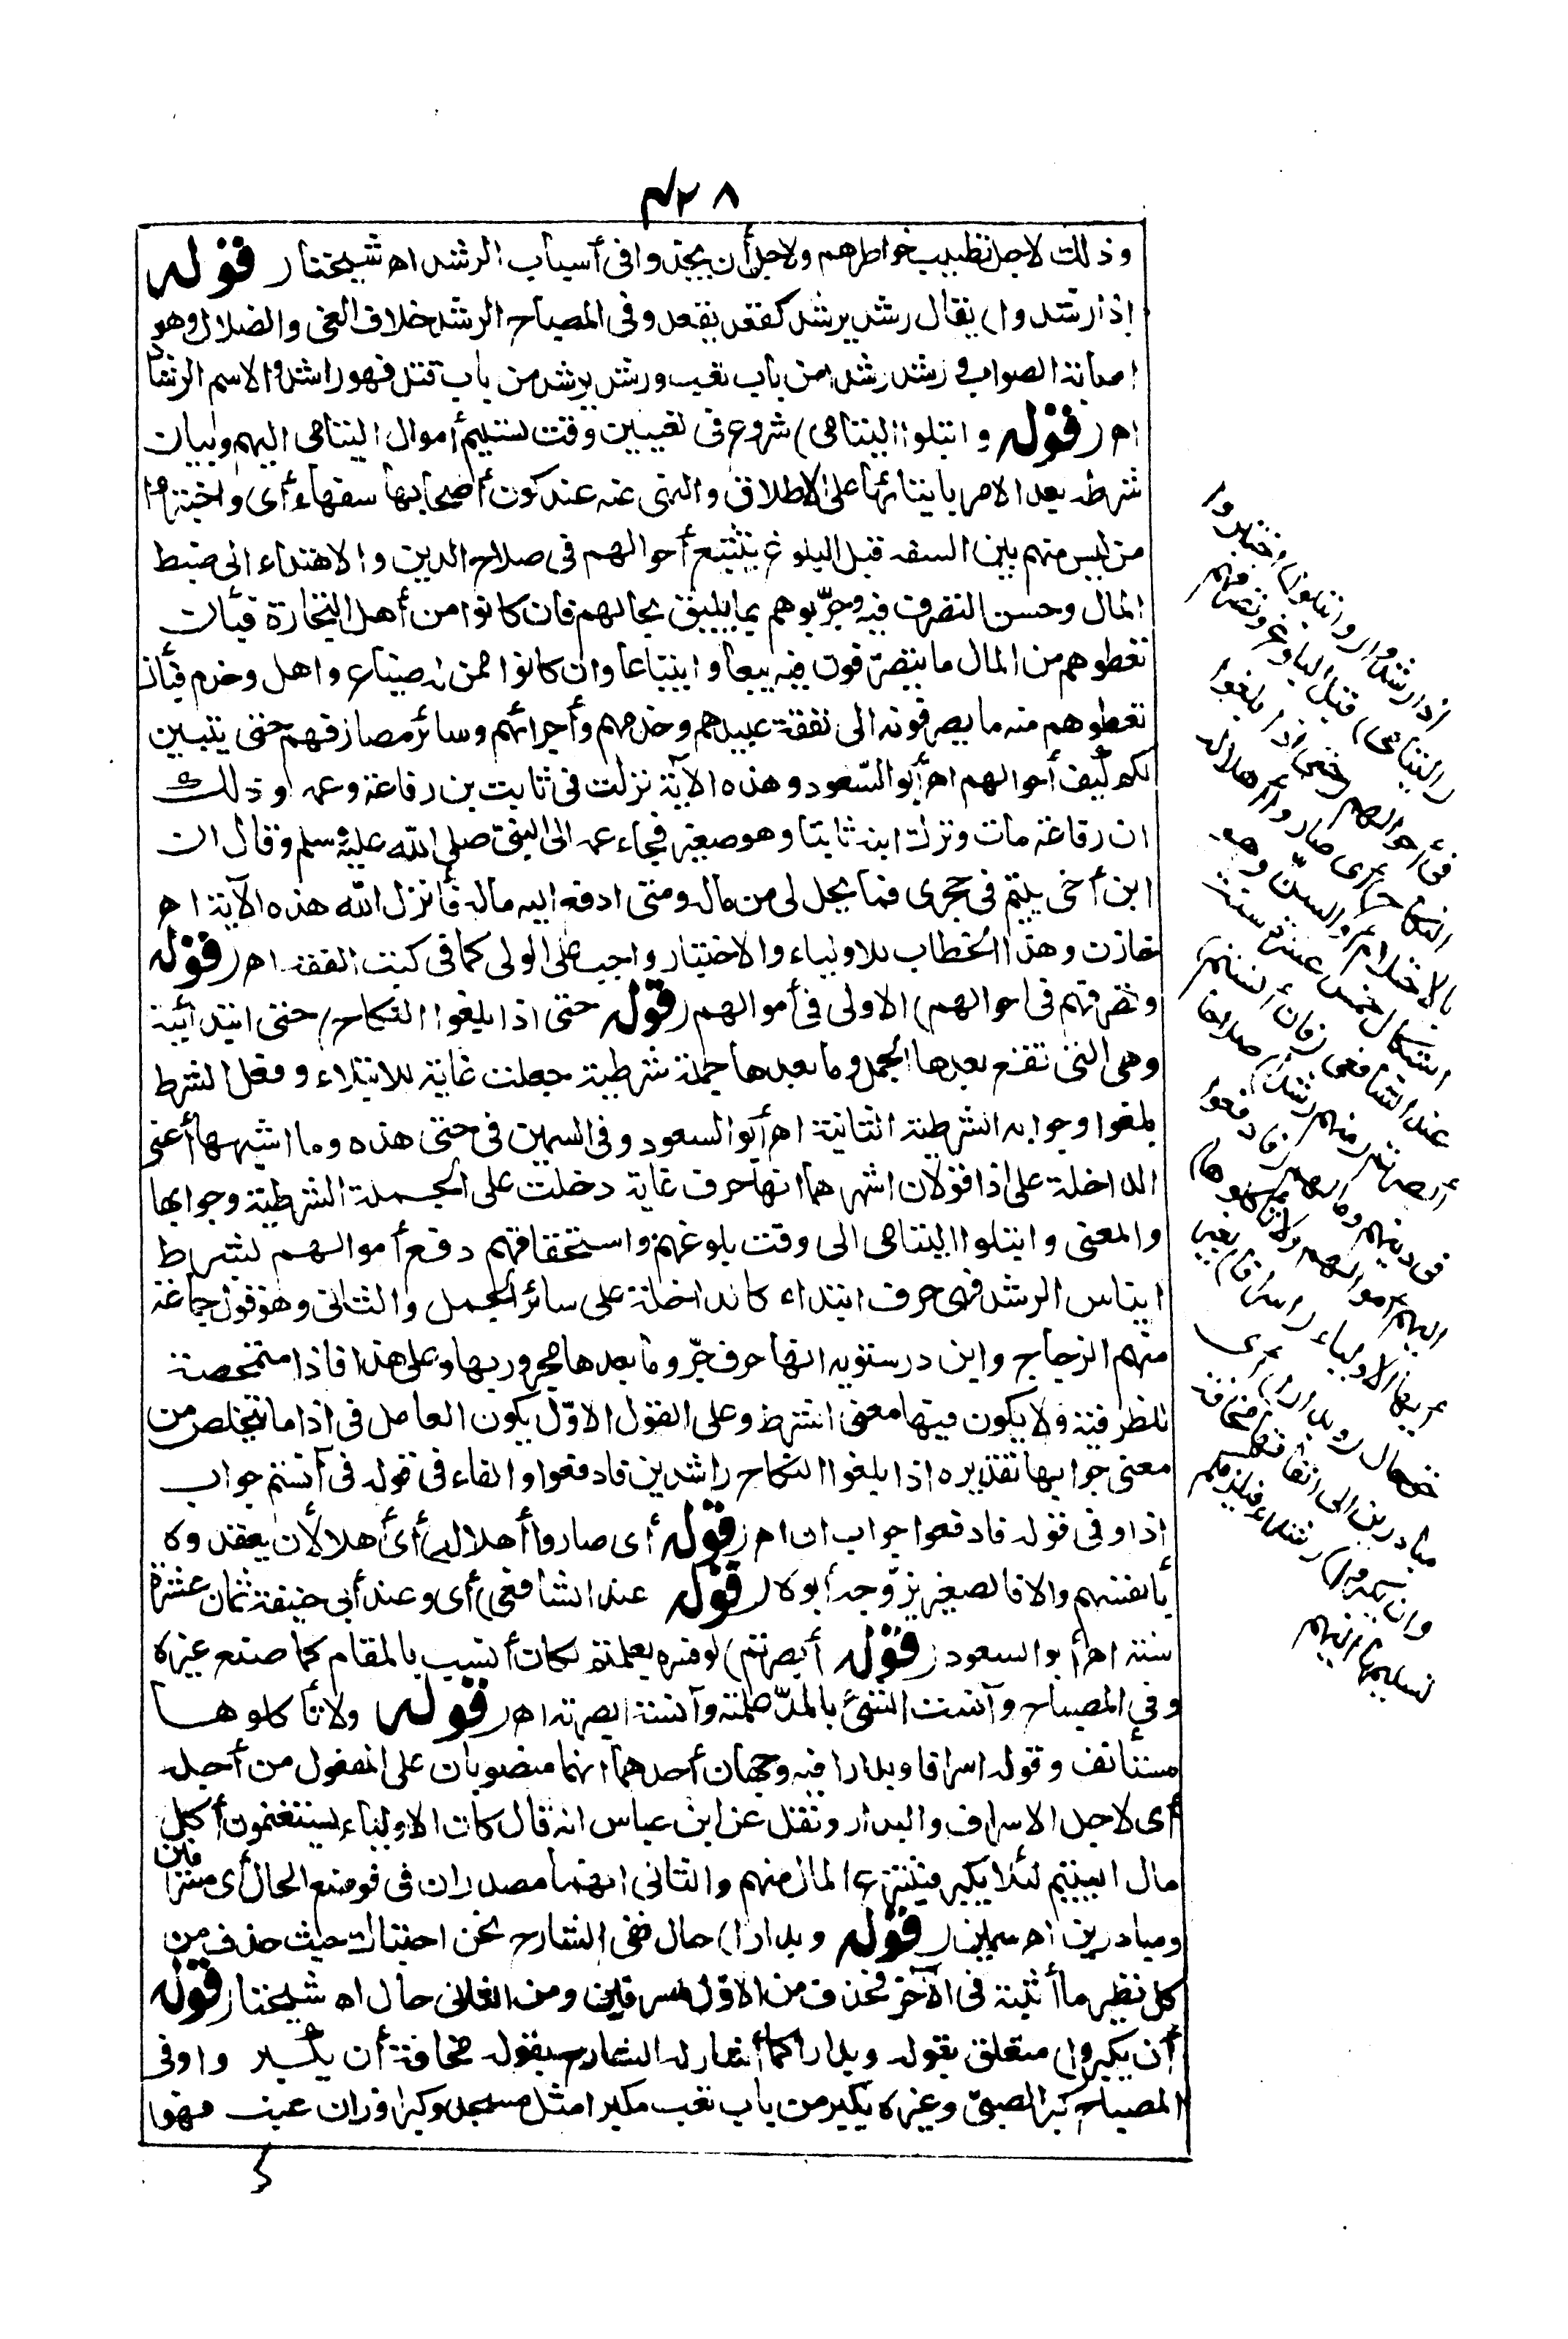 ٤٢٨
وذلك لاجل تطييب خواطرهم ولاجل أن يجدوا فى أسباب الرشد اه شيخنا ( قوله
إذا رشدوا ) يقال رشد يرشد كقعد يقعد وفى المصباح الرشد خلاف الغى والضلال وهو
اصابة الصواب و رشد رشدا من باب تعب ورشد يرشد من باب قتل فهو راشد والاسم الرشاد
اه ( قوله وابتلوا اليتامى ) شروع فى تعيين وقت تسليم أموال اليتامى اليهم وبيان
شرطه بعد الامر بايتائها على الاطلاق والنهى عنه عند كون أصحابها سفهاء أى واختبروا
من ليس منهم بين السفه قبل البلوغ بتتبع أحوالهم فى صلاح الدين والاهتداء الى ضبط
المال وحسن التصرف فيه وجرّبوهم بما يليق بحالهم فان كانوا من أهل التجارة فبأن
تعطوهم من المال ما يتصرّفون فيه بيعا وابتياعا وان كانوا ممن له ضياع واهل وخدم فبأن
تعطوهم منه ما يصرفونه الى نفقة عبيدهم وخدمهم وأجرائهم وسائر مصارفهم حتى يتبين
لكم كيف أحوالهم اه أبو السّعود وهذه الآية نزلت فى ثابت بن رفاعة وعمه وذلك
ان رفاعة مات وترك ابنه ثابتا وهو صغير فجاء عمه الى النبىّ صلى الله عليه وسلم وقال ان
ابن أخى يتيم فى حجرى فما يحل لى من ماله ومتى ادفع اليه ماله فأنزل الله هذه الآية اه
خازن وهذا الخطاب للاولياء والاختبار واجب على الولى كما فى كتب الفقه اه ( قوله
وتصرفهم فى احوالهم ) الاولى فى أموالهم ( قوله حتى اذا بلغوا النكاح ) حتى ابتدائية
وهى التى تقع بعدها الجمل وما بعدها جملة شرطية جعلت غاية للابتلاء وفعل الشرط
بلغوا وجوابه الشرطية الثانية اه أبو السعود وفى السمين فى حتى هذه وما اشبهها أعنى
الداخلة على اذا قولان اشهرهما انها حرف غاية دخلت على الجملة الشرطية وجوابها
والمعنى وابتلوا اليتامى الى وقت بلوغهم واستحقاقهم دفع أموالهم بشرط
ايناس الرشد فهى حرف ابتداء كالداخلة على سائر الجمل والثانى وهو قول جماعة
منهم الزجاج وابن درستويه انها حرف جرّ وما بعدها مجرور بها وعلى هذا فاذا متمحصة
للظرفية ولا يكون فيها معنى الشرط وعلى القول الاوّل يكون العامل فى اذا ما يتخلص من
معنى جوابها تقديره اذا بلغوا النكاح راشدين فادفعوا والفاء فى قوله فى آنستم جواب
اذا وفى قوله فادفعوا جواب ان اه ( قوله أى صاروا أهلا له ) أى أهلا لأن يعقدوه
بأنفسهم والا فالصغير يزوّجه أبوه ( قوله عند الشافعى ) أى وعند أبى حنيفة ثمان عشرة
سنة اه أبو السعود ( قوله أبصرتم ) لو فسره بعلمتم لكان أنسب بالمقام كما صنع غيره
وفى المصباح وآنست الشئ بالمدّ علمته وآنسته ابصرته اه ( قوله ولا تأكلوها
مستأنف وقوله اسرافا وبدارا فيه وجهان أحدهما انهما منصوبان على المفعول من أجله
أى لاجل الاسراف والبدار ونقل عن ابن عباس انه قال كان الاولياء يستغنمون أكل
مال اليتيم لئلا يكبر فينتزع المال منهم والثانى انهما مصدران فى موضع الحال أى مسرفين
ومبادرين اه سمين ( قوله وبدارا ) حال ففى الشارح نحن احتباك حيث حذف من
كل نظير ما أثبته فى الآخر فحذف من الاوّل مسرفين ومن الثانى حال اه شيخنا ( قوله
أن يكبروا ) متعلق بقوله وبدارا كما أشار له الشارح بقوله مخافة أن يكبروا وفى
المصباح كبر الصبىّ وغيره يكبر من باب تعب مكبرا مثل مسجد وكبرا وزان عنب فهو
اذا رشدوا ( وابتلوا ) اختبروا
( اليتامى ) قبل البلوغ وتصرفهم
فى أحوالهم ( حتى اذا بلغوا
النكاح ) أى صاروا أهلا له
بالاحتلام أو السنّ وهو
استكمال خمس عشرة سنة
عند الشافعى ( فان آنستم )
أبصرتم ( منهم رشدا ) صلاحا
فى دينهم ومالهم ( فادفعوا
اليهم أموالهم ولا تأكلوها )
أيها الاولياء ( اسرافا ) بغير
حق حال ( وبدارا ) أى
مبادرين الى انفاقها مخافة
( أن يكبروا ) رشداء فيلزمكم
تسليمها اليهم